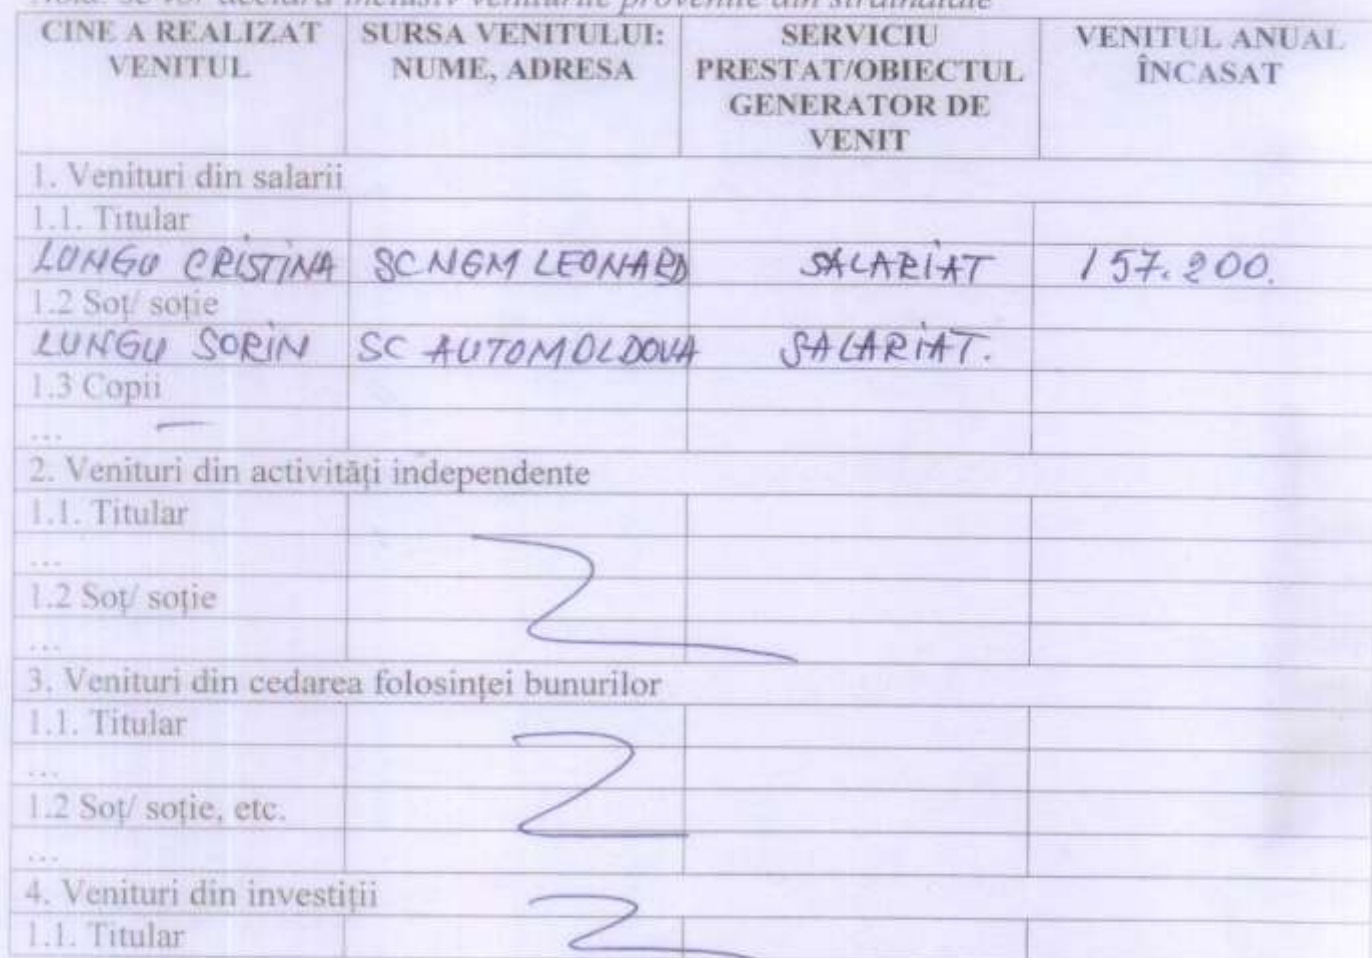 Notă: Se vor declara inclusiv veniturile provenite din străinătate
CINE A REALIZAT VENITUL
SURSA VENITULUI: NUME, ADRESA
SERVICIU PRESTAT/OBIECTUL GENERATOR DE VENIT
VENITUL ANUAL ÎNCASAT
1. Venituri din salarii
1.1. Titular
LUNGU CRISTINA SC NGM LEONARD SALARIAT 157.200.
1.2 Soț/ soție
LUNGU SORIN SC AUTOMOLDOVA SALARIAT.
1.3 Copii
... —
2. Venituri din activități independente
1.1. Titular
...
1.2 Soț/ soție
...
3. Venituri din cedarea folosinței bunurilor
1.1. Titular
...
1.2 Soț/ soție, etc.
...
4. Venituri din investiții
1.1. Titular